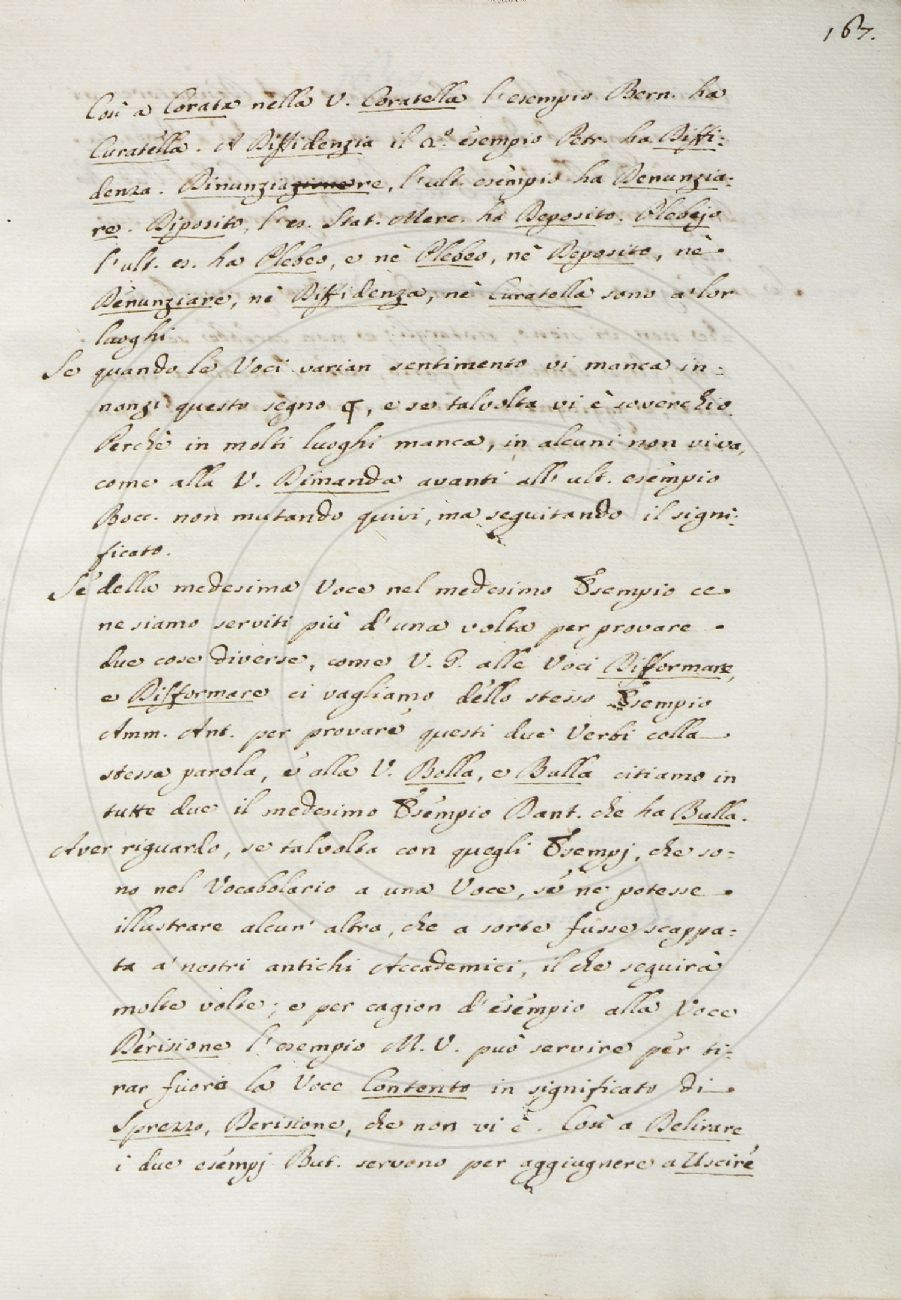 167.
Così a Corata nella V. Coratella l'esempio Bern. ha
Curatella. A Diffidenzia il 2º. esempio Petr. ha Diffi-
denza. Dinunziazionere, l'ult. esempio ha Denunzia-
re. Diposito, l'es. Stat. Merc. ha Deposito. Plebejo
l'ult. es. ha Plebeo, e nè Plebeo, nè Deposito, nè
Denunziare, nè Diffidenza, nè Curatella sono a lor
luoghi
Se quando le Voci varian sentimento vi manca in-
nanzi questo segno ¶, e se talvolta vi è soverchio
Perchè in molti luoghi manca, in alcuni non vi va,
come alla V. Dimanda avanti all' ult. esempio
Bocc. non mutando quivi, ma seguitando il signi-
ficato.
Se della medesima Voce nel medesimo Esempio ce
ne siamo serviti più d'una volta per provare
due cose diverse, come V. G. alle Voci Difformare,
e Disformare ci vagliamo dello stesso Esempio
Amm. Ant. per provare questi due Verbi colla
stessa parola, e alla V. Bolla, e Bulla citiamo in
tutte due il medesimo Esempio Dant. che ha Bulla.
Aver riguardo, se talvolta con quegli Esempj, che so-
no nel Vocabolario a una Voce, se ne potesse
illustrare alcun' altra, che a sorte fusse scappa-
ta a' nostri antichi Accademici, il che seguirà
molte volte; e per cagion d'esempio alla Voce
Derisione l'esempio M. V. può servire per ti-
rar fuora la Voce Contento in significato di
Sprezzo, Derisione, che non vi è. Così a Delirare
i due esempj But. servono per aggiugnere a Uscire